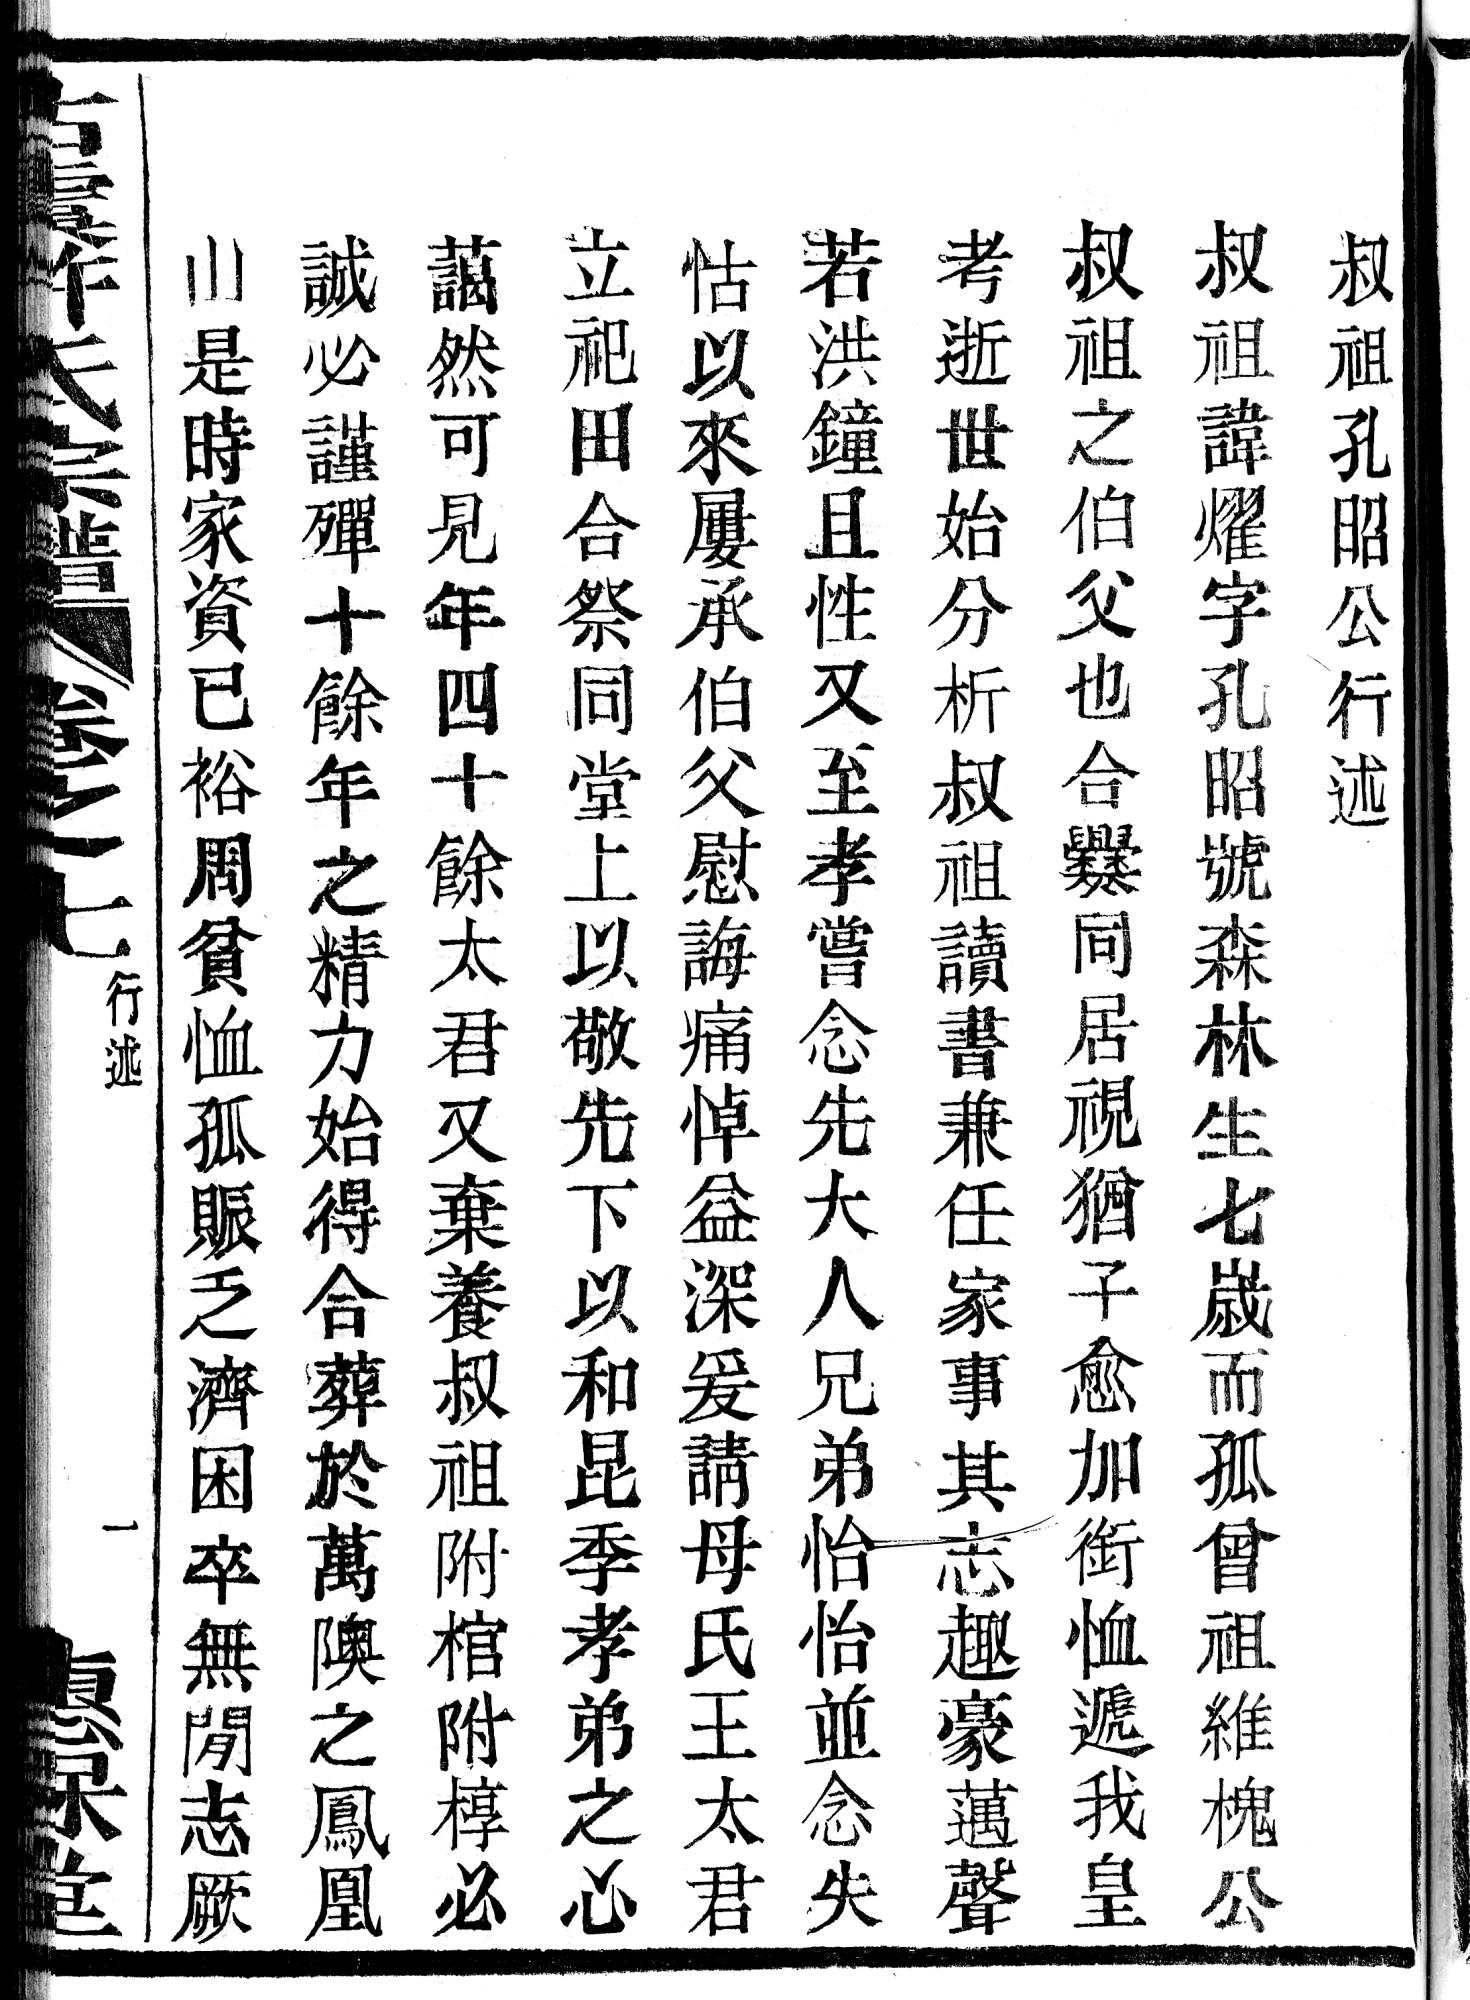 叔祖孔昭公行述
叔祖諱燿字孔昭號森林生七歲而孤曾祖維槐公
叔祖之伯父也合爨同居視猶子愈加銜恤遞我皇
考逝世始分析叔祖讀書兼任家事其志趣豪邁聲
若洪鐘且性又至孝嘗念先大人兄弟怡怡並念失
怙以來屢承伯父慰誨痛悼益深爰請母氏王太君
立祀田合祭同堂上以敬先下以和昆季孝弟之心
藹然可見年四十餘太君又棄養叔祖附棺附椁必
誠必謹殫十餘年之精力始得合葬於萬隩之鳳凰
山是時家資已裕周貧恤孤賑乏濟困卒無閒志厥
氏宗譜
卷之七
行述
一
惠保堂